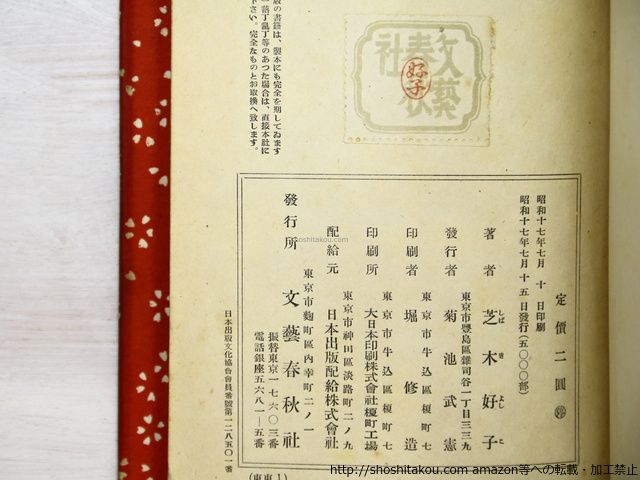 版の書籍は、製本にも完全を期してゐます
一落丁亂丁等のあつた場合は、直接本社に
下さい。完全なものとお取換へ致します。
文藝春秋社
好子
定價二圓
昭和十七年七月 十 日印刷
昭和十七年七月 十五 日發行(五〇〇〇部)
著者 芝木好子
しばきよしこ
東京市豐島區雜司谷一丁目三三九
發行者 菊池武憲
東京市牛込區榎町七
印刷者 堀修造
東京市牛込區榎町七
印刷所 大日本印刷株式會社榎町工場
東京市神田區淡路町二ノ九
配給元 日本出版配給株式會社
東京市麴町區內幸町二ノ一
發行所 文藝春秋社
振替東京一七六〇三番
電話銀座五六八一-五番
日本出版文化協會會員番號第一二八五〇一番
shoshitakou.com
http://shoshitakou.com amazon等への転載・加工禁止